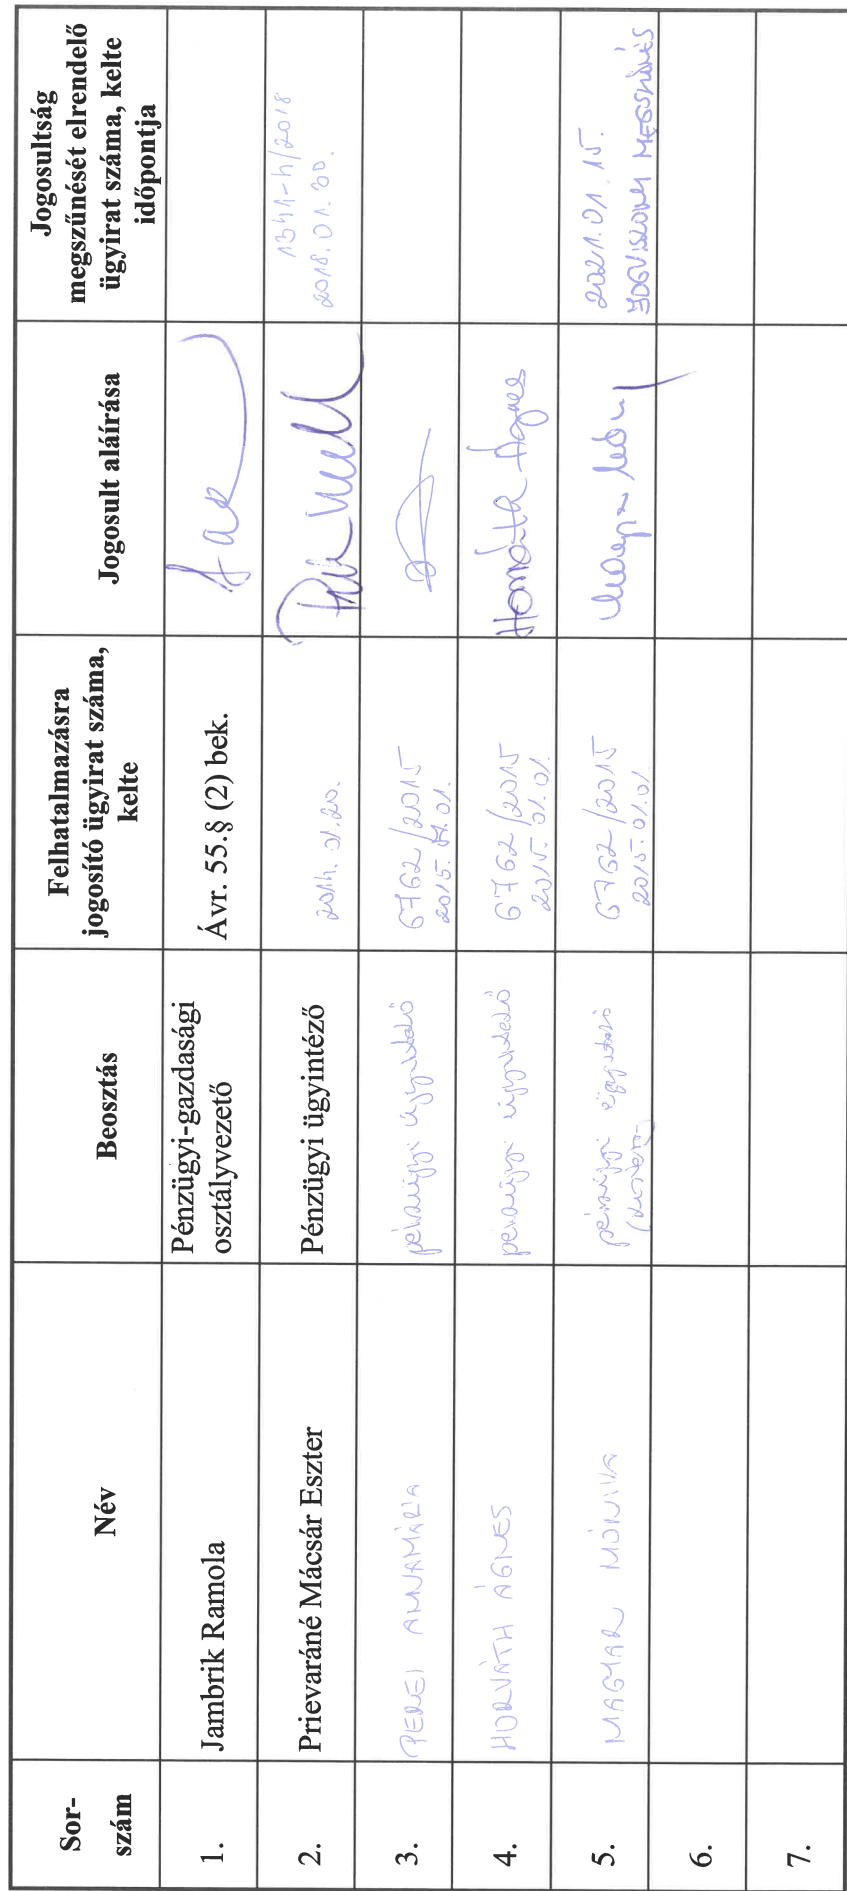 Sor-
szám
Név
Beosztás
Felhatalmazásra
jogosító ügyirat száma,
kelte
Jogosult aláírása
Jogosultság
megszűnését elrendelő
ügyirat száma, kelte
időpontja
1.
Jambrik Ramola
Pénzügyi-gazdasági
osztályvezető
Ávr. 55.§ (2) bek.
2.
Prievaráné Mácsár Eszter
Pénzügyi ügyintéző
2014. 01.20.
1341-4/2018
2018.01.30.
3.
PEREI ANNAMÁRIA
pénzügyi ügyintéző
6762/2015
2015. 01.01.
4.
HORVÁTH ÁGNES
pénzügyi ügyintéző
6762/2015
2015. 01.01.
Horváth Ágnes
5.
MAGYAR MÓNIKA
pénzügyi ügyintéző
6762/2015
2015. 01.01
2021.01.15.
JOGVISZONY MEGSZŰNÉS
6.
7.